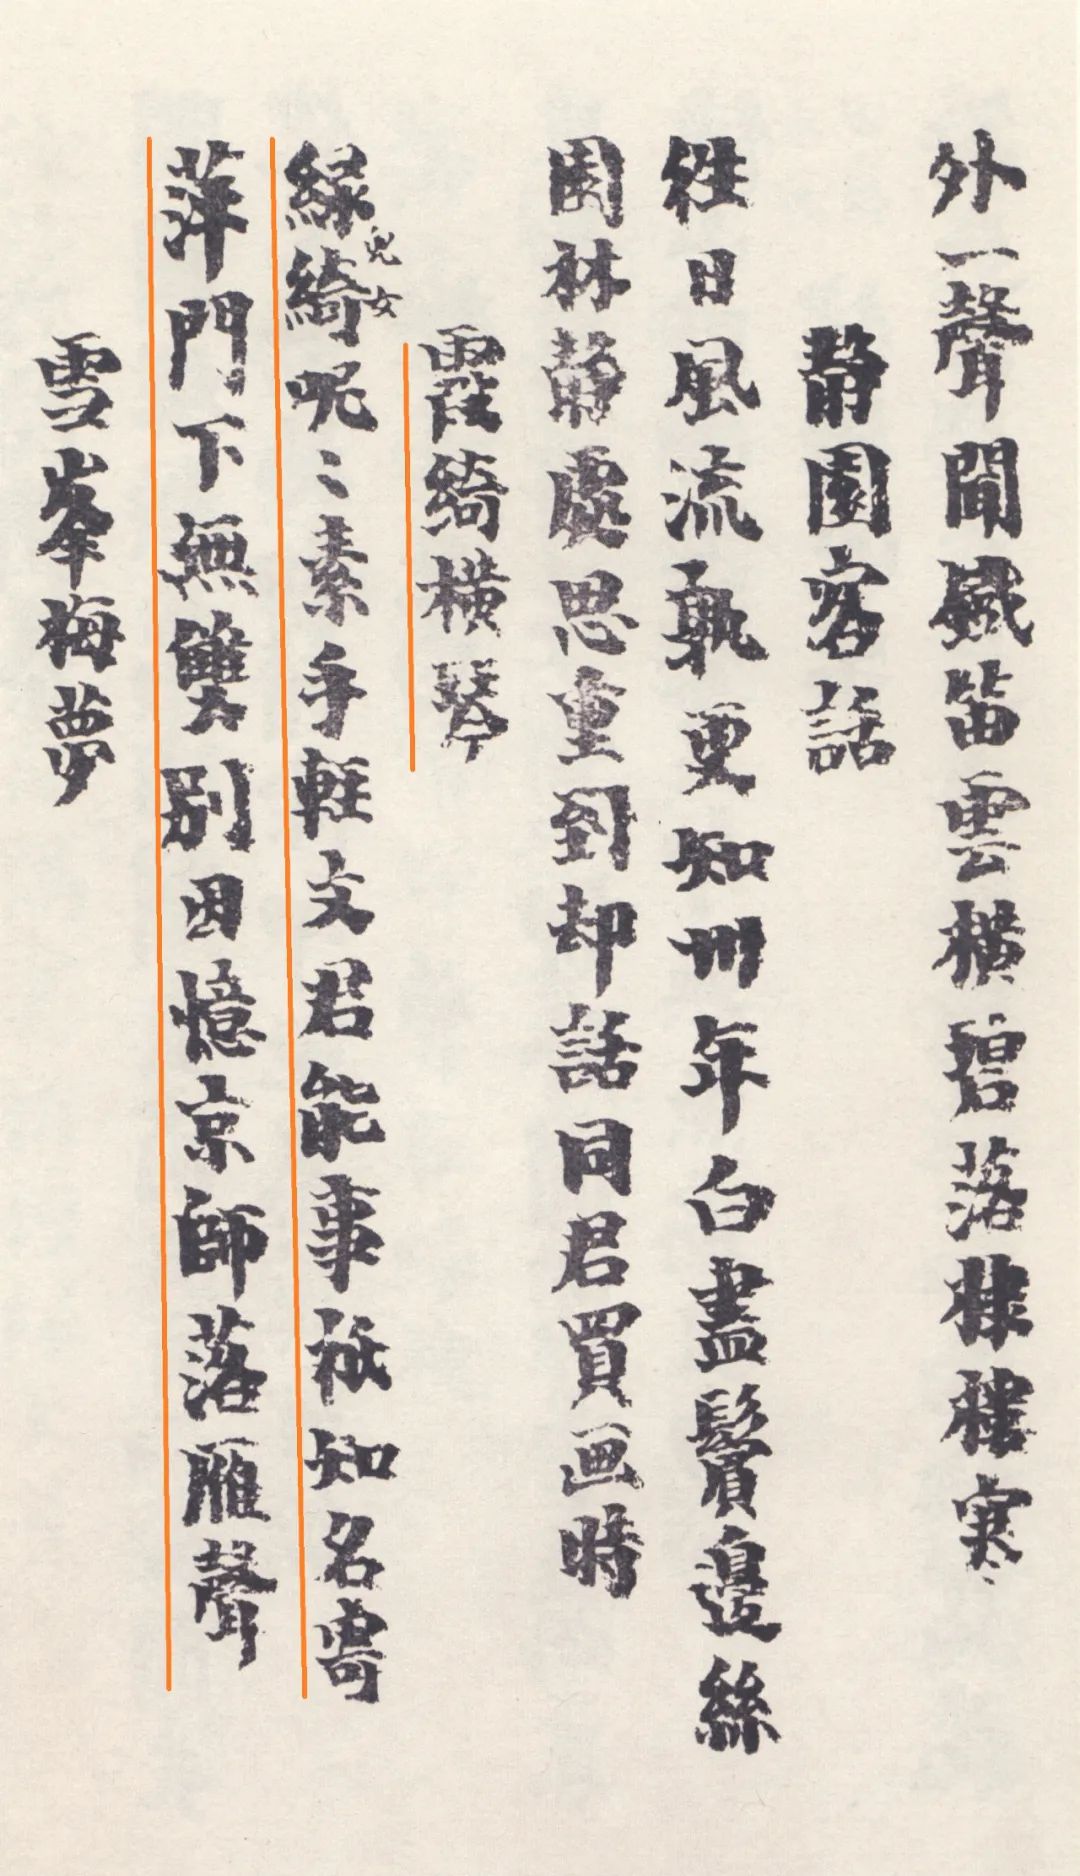 外一聲聞鐵笛雲橫碧落棣樓寒
靜園客話
往日風流孰更知卅年白盡鬢邊絲
園林靜處思重到却話同君買画時
霞綺橫琴
兒女
綠綺呢〻素手輕文君能事秖知名寄
萍門下無雙別因憶京師落雁聲
雪峯梅夢